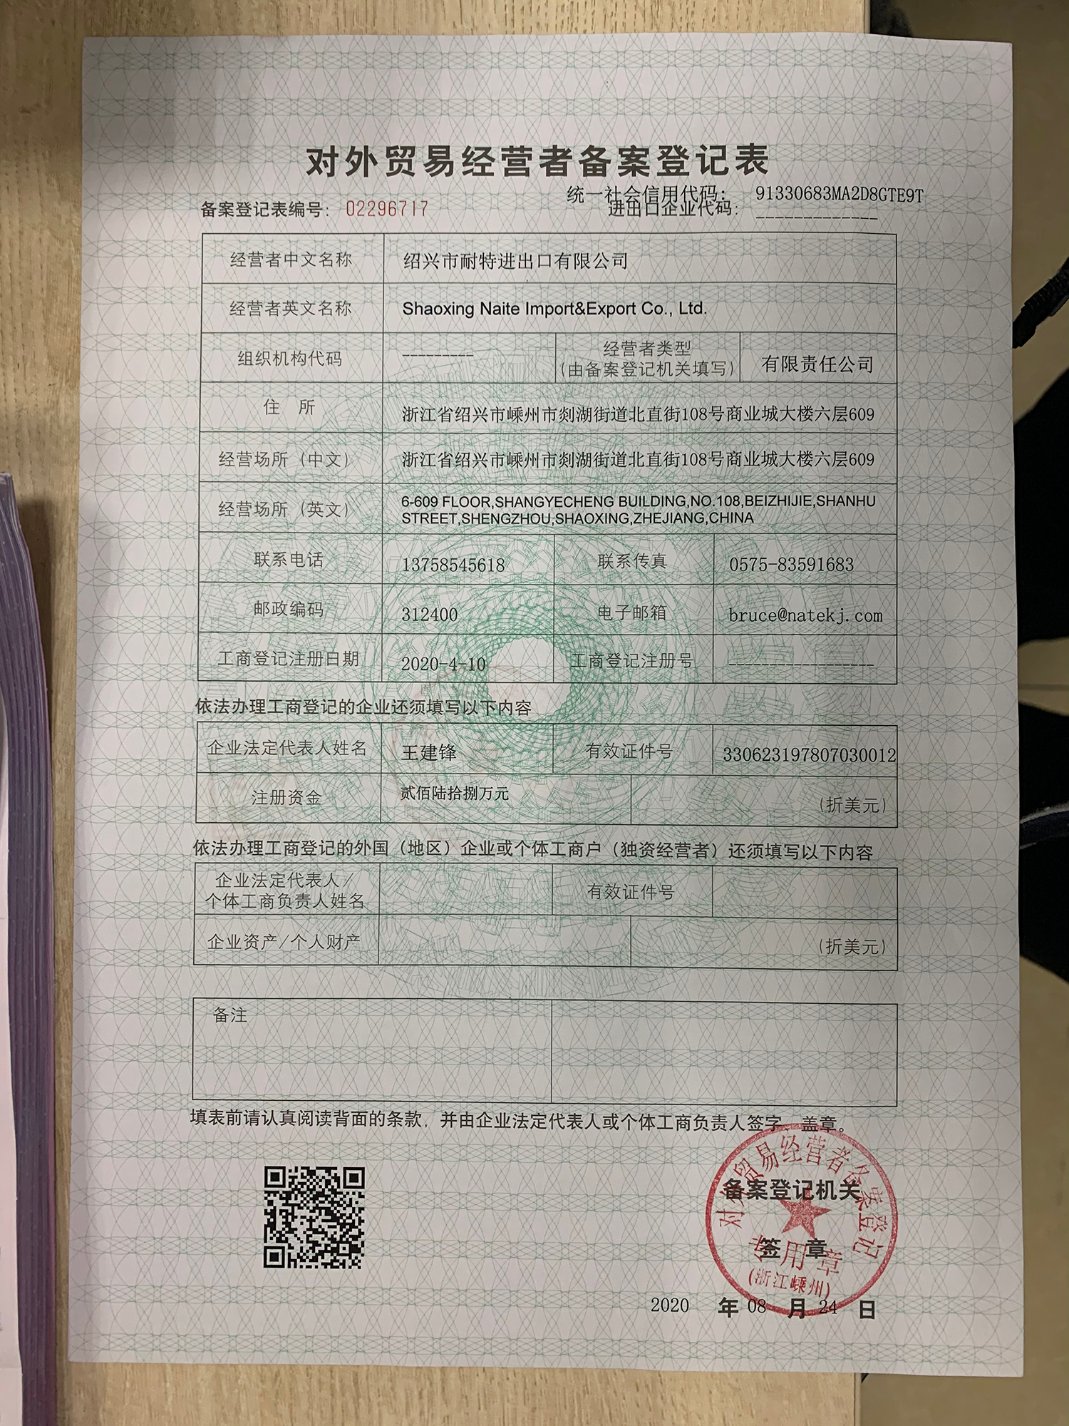 对外贸易经营者备案登记表
统一社会信用代码： 91330683MA2D8GTE9T
备案登记表编号： 02296717 进出口企业代码： -------------
经营者中文名称 绍兴市耐特进出口有限公司
经营者英文名称 Shaoxing Naite Import&Export Co., Ltd.
组织机构代码 --------- 经营者类型 (由备案登记机关填写) 有限责任公司
住 所 浙江省绍兴市嵊州市剡湖街道北直街108号商业城大楼六层609
经营场所（中文） 浙江省绍兴市嵊州市剡湖街道北直街108号商业城大楼六层609
经营场所（英文） 6-609 FLOOR,SHANGYECHENG BUILDING,NO.108,BEIZHIJIE,SHANHU
STREET,SHENGZHOU,SHAOXING,ZHEJIANG,CHINA
联系电话 13758545618 联系传真 0575-83591683
邮政编码 312400 电子邮箱 bruce@natekj.com
工商登记注册日期 2020-4-10 工商登记注册号 -----------------
依法办理工商登记的企业还须填写以下内容
企业法定代表人姓名 王建锋 有效证件号 330623197807030012
注册资金 贰佰陆拾捌万元 (折美元)
依法办理工商登记的外国（地区）企业或个体工商户（独资经营者）还须填写以下内容
企业法定代表人/
个体工商负责人姓名 有效证件号
企业资产/个人财产 (折美元)
备注
填表前请认真阅读背面的条款，并由企业法定代表人或个体工商负责人签字、盖章。
对外贸易经营者备案登记
备案登记机关
签 章
专用章
(浙江嵊州)
2020 年 08 月 24 日